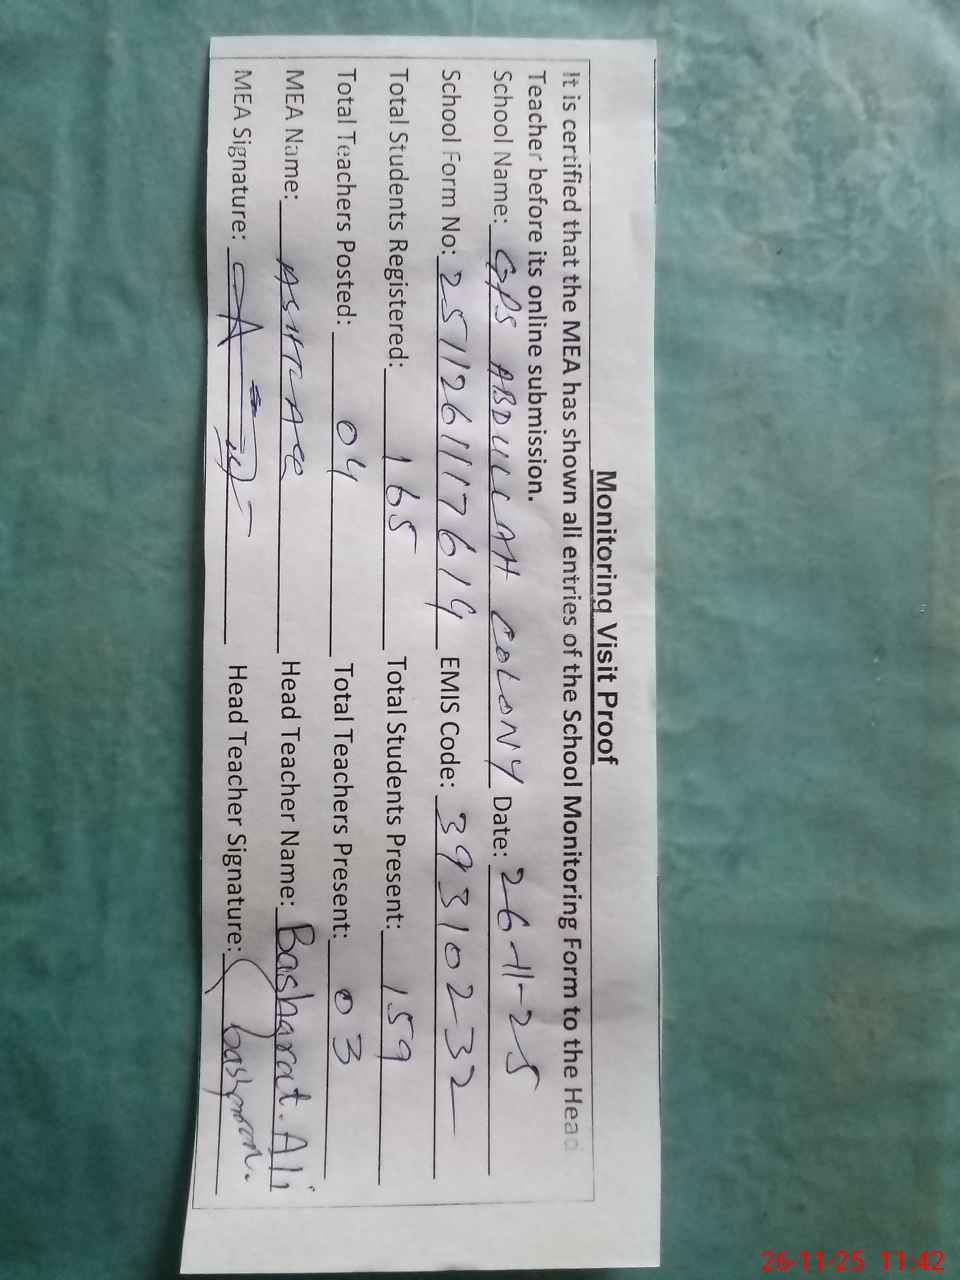 Monitoring Visit Proof
It is certified that the MEA has shown all entries of the School Monitoring Form to the Head
Teacher before its online submission.
School Name: GPS ABDULLAH COLONY Date: 26-11-25
School Form No: 2511261117619 EMIS Code: 39310232
Total Students Registered: 165 Total Students Present: 159
Total Teachers Posted: 04 Total Teachers Present: 03
MEA Name: ASHFAQ Head Teacher Name: Basharat. Ali
MEA Signature: Head Teacher Signature:
26-11-25 11:42